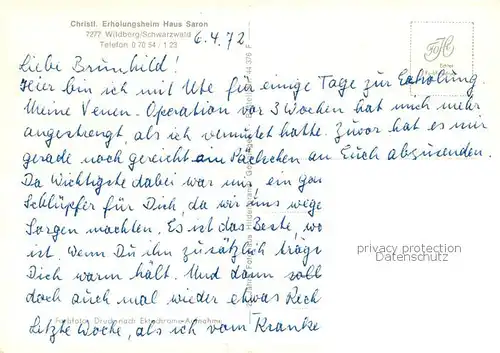 Christl. Erholungsheim Haus Saron
7277 Wildberg/Schwarzwald
Telefon 0 70 54 / 1 23
6.4.72
Liebe Brunhild!
Hier bin ich mit Ute für einige Tage zur Erholung.
Meine Venen-Operation vor 3 Wochen hat mich mehr
angestrengt, als ich vermutet hatte. Zuvor hat es mir
gerade noch gereicht ein Päckchen an Euch abzusenden.
Da Wichtigste dabei war uns, ein
Schlüpfer für Dich, da wir uns wege
Sorgen machten. Es ist das Beste, wo
ist. Wenn Du ihn zusätzlich träg
Dich warm hält. Und dann soll
doch auch mal wieder etwas Rech
Letzte Woche, als ich vom Kranke
Farbfotos Druck nach Ektachrome-Aufnahme
privacy protection
Datenschutz